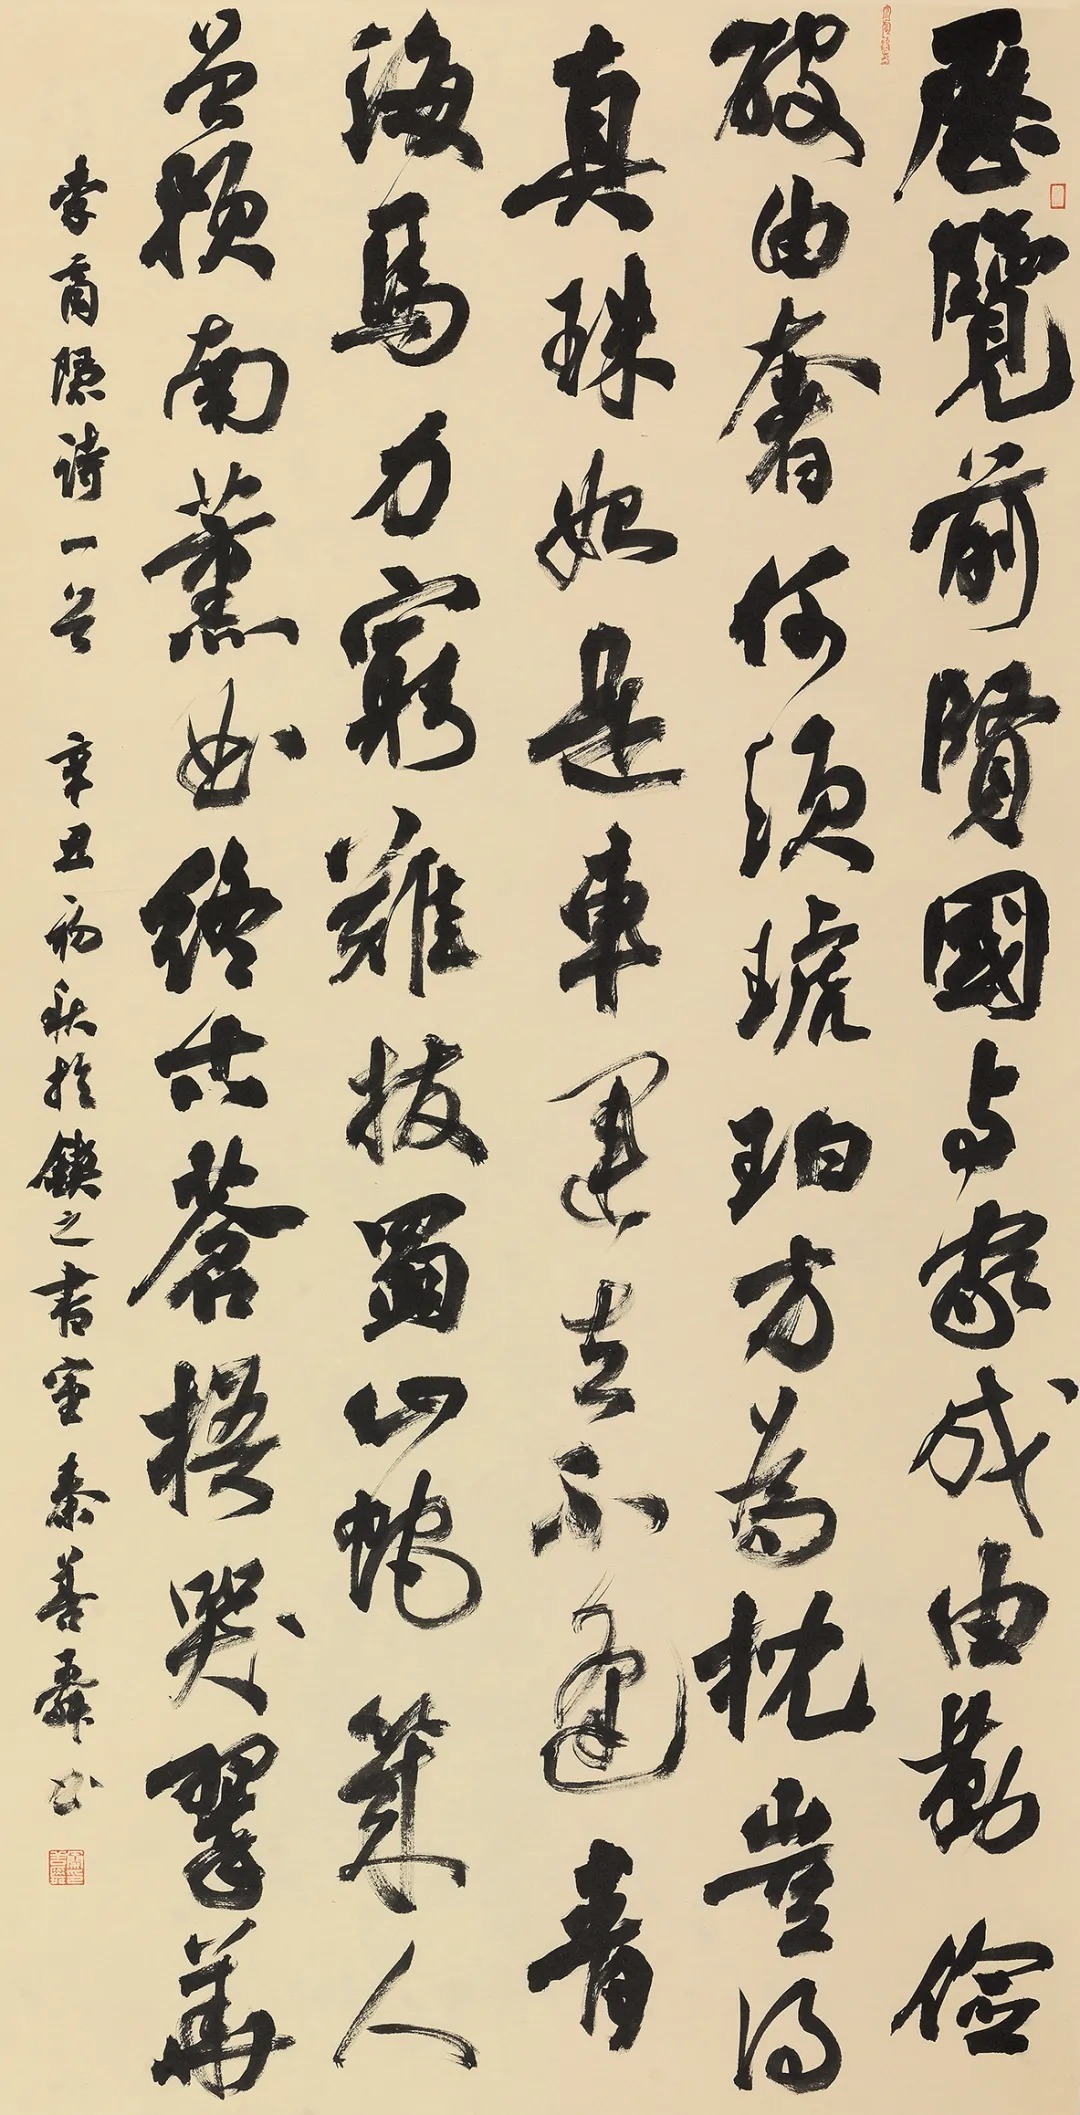 歷覽前賢國与家成由勤儉
破由奢何須琥珀方為枕豈得
真珠始是車運去不逢青
海馬力窮難拔蜀山蛇幾人
曾預南薰曲終古蒼梧哭翠華
李商隱詩一首 辛丑初秋於鍥之書室秦善舜书